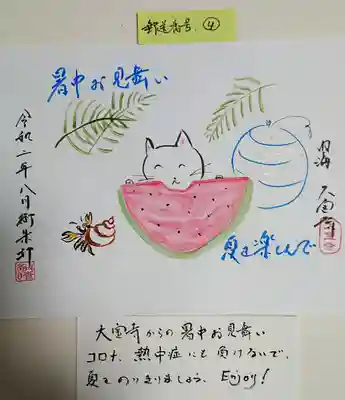 郵送番号、④
暑中お見舞い
令和二年八月
夏を楽しんで
大宝寺からの暑中お見舞い
コロナ、熱中症にも負けないで、
夏をのりきりましょう、Enjoy!